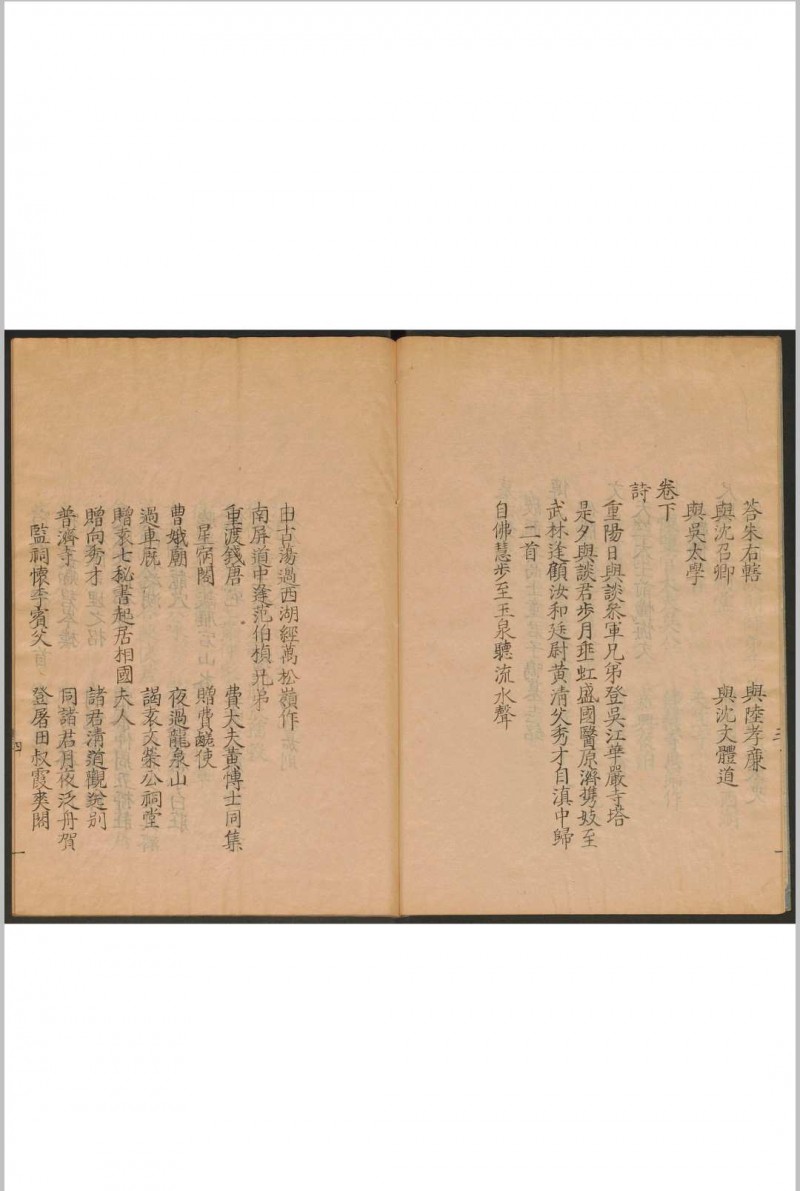 荅朱右轄　與陸孝廉
與沈召卿　與沈文體道
與吳太學
卷下
詩
重陽日與談叅軍兄弟登吳江華嚴寺塔
是夕與談君步月垂虹盛國醫原濟携妓至
武林逢顧汝和廷尉黃清父秀才自滇中歸
二首
自佛慧步至玉泉聽流水聲
三
由古蕩過西湖經萬松嶺作
南屏道中逢范伯楨兄弟
重渡錢唐　費大夫黃博士同集
星宿閣　贈費鹺使
曹娥廟　夜過龍泉山
過車廐　謁袁文榮公祠堂
贈袁七秘書起居相國　夫人
贈向秀才　諸君清道觀送别
普濟寺　同諸君月夜泛舟賀
監祠懷李賓父　登屠田叔霞爽閣
四